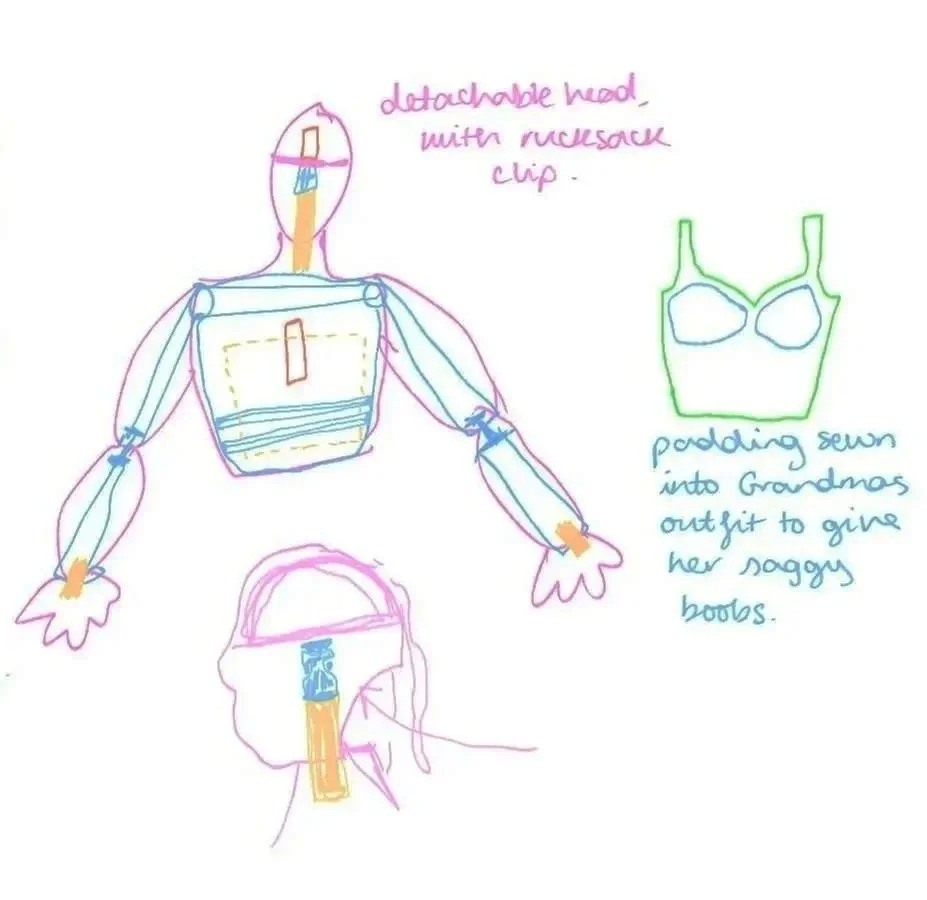 detachable head,
with rucksack
clip.
padding sewn
into Grandmas
outfit to give
her saggy
boobs.